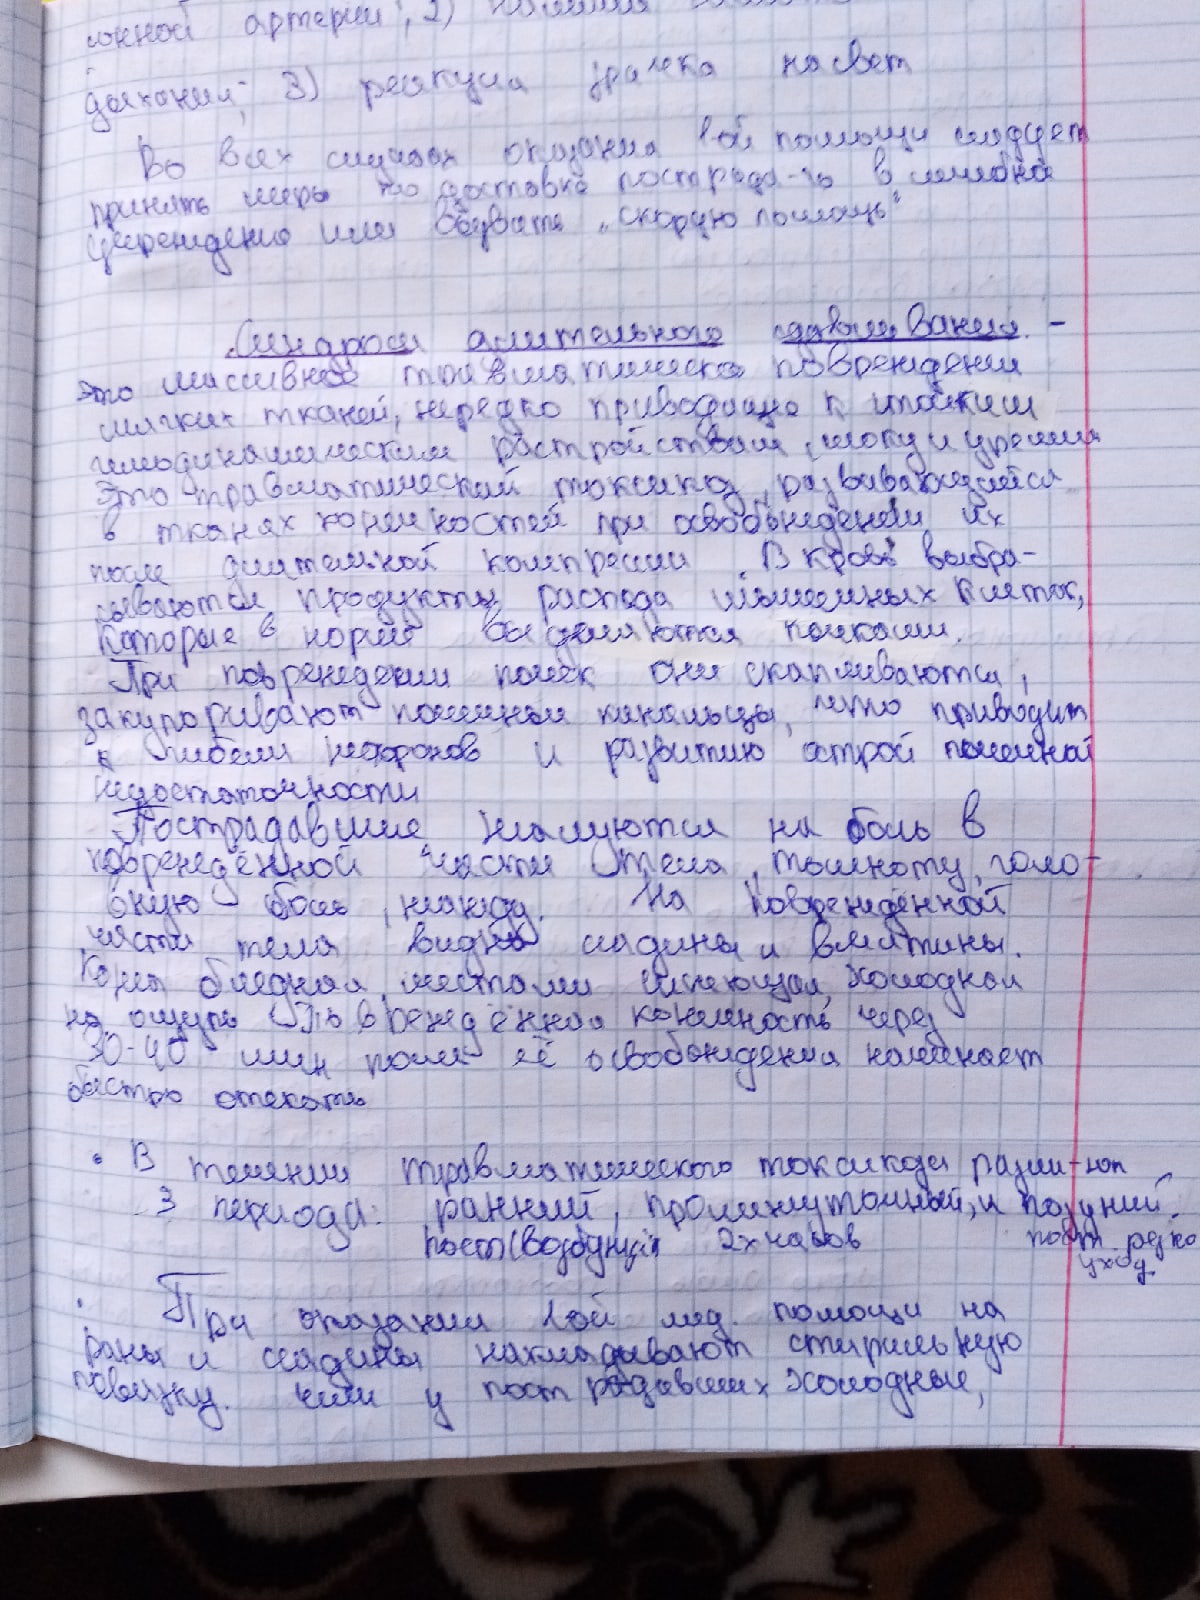 сонной артерии; 2)
дыхания; 3) реакция зрачка на свет
Во всех случаях оказания 1ой помощи следует
принять меры по доставке пострада-го в лечебное
учреждение или вызвать „скорую помощь"
Синдром длительного сдавливания. -
это массивное травматическое повреждение
мягких тканей, нередко приводящие к стойким
гемодинамическим расстройствам, шоку и уремии
Это травматический токсикоз, развивающийся
в тканях конечностей при освобождении их
после длительной компрессии. В кровь выбра-
сываются продукты распада мышечных клеток,
которые в норме выделяются почками.
При повреждении почек они скапливаются,
закупоривают почечные канальцы, что приводит
к гибели нефронов и развитию острой почечной
недостаточности
Пострадавшие жалуются на боль в
повреждённой части тела, тошноту, голо-
вную боль, жажду. На повреждённой
части тела видны ссадины и вмятины.
Кожа бледная, местами синеющая, холодная
на ощупь. Повреждённая конечность через
30-40 мин после её освобождения начинает
быстро отекать
• В течении травматического токсикоза разли-ют
3 периода: ранний, промежуточный, и поздний.
пост (возбуждён 2х часов пост. резко
уход
• При оказании 1ой мед. помощи на
раны и ссадины накладывают стирильную
повязку. Если у пострадавших холодные,